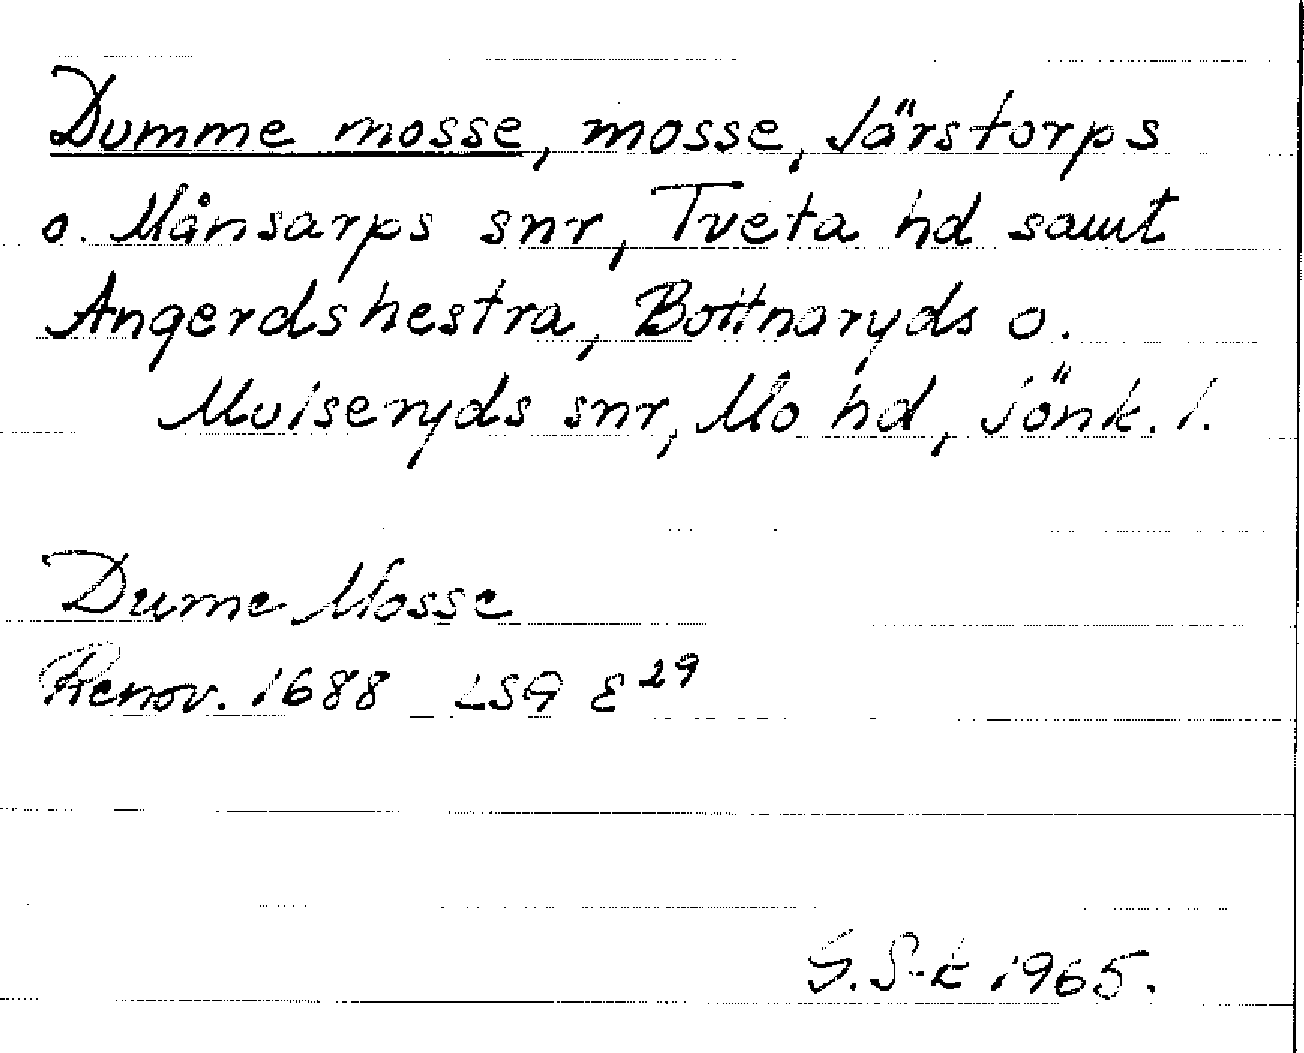 Dumme mosse, mosse, Järstorps
o. Månsarps snr, Tveta hd samt
Angerdshestra, Bottnaryds o.
Mulseryds snr, Mo hd, Jönk. l.
Dume Mosse
Renov. 1688 LSA E 29
G. S-k 1965.